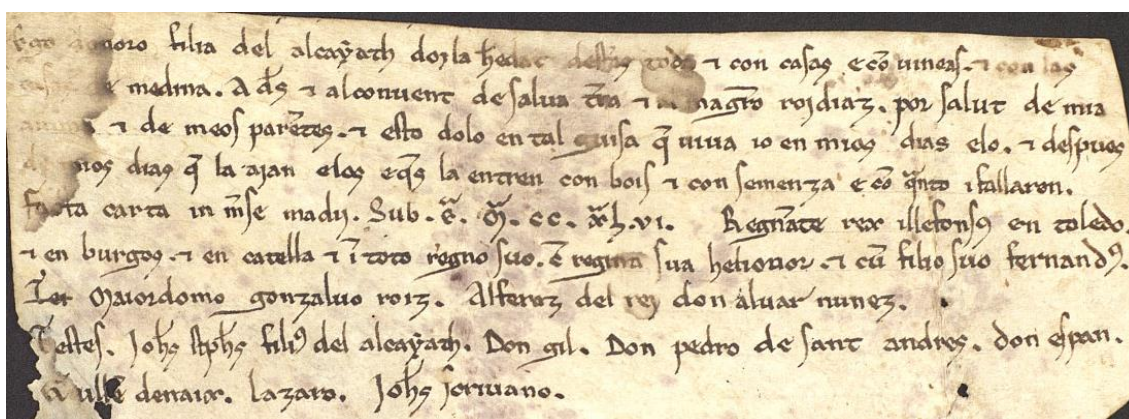 Ego filia del alcaÿath do la h̄edat todas ⁊ con casas e cō uineas. ⁊ con las
medina. A dſ̄ ⁊ al conuent de salua tr̄ra ⁊ al magr̄o roi diaz. por salut de mia
anima ⁊ de meos parētes. ⁊ esto dolo en tal guisa q̄ uiua io en mios dias elo. ⁊ despues
mios dias q̄ la aian elos e q̄s la entren con bois ⁊ con semenza e cō qᵃnto i fallaren.
facta carta in m̄se madii. Sub. E. M. cc. xl. vi. Regnāte rex illefonsꝰ en toledo.
⁊ en burgos. ⁊ en catella ⁊ ī toto regno suo. regina sua helionor. ⁊ cū filio suo fernandꝰ.
Maiordomo gonzaluo roiz. Alferez del rey don aluar nunez.
Testes. Joh̄s stph̄s filiꝰ del alcaÿath. Don gil. Don pedro de sant andres. don espan.
lazaro. Joh̄s